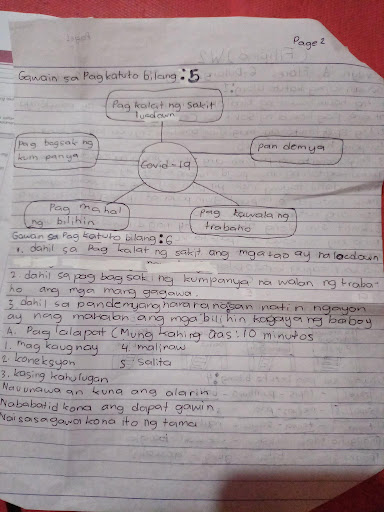 Page 2
Gawain sa Pagkatuto bilang: 5
Pag kalat ng sakit
lucdown
pag bagsak ng
kum panya
Covid-19
pan demya
Pag mahal
ng bilihin
pag kawalang
trabaho
Gawan sa Pag katuto bilang: 6
1. dahil sa Pag kalat ng sakit ang mga tao ay na locdown
2 dahil sa pag bag sak ng kumpanya na walan ng traba-
ho ang mga mang gagawa
3 dahil sa pandemyang hararanasan natin ngayon
ay nag mahalan ang mga bilihin kagaya ng baboy
A. Pag lalapat (Mung kahing Oas: 10 minutos
1. mag kaugnay 4. malinaw
2. koneksyon 5. salita
3. kasing kahulugan
Nauunawaan kuna ang alarin
Nababatid kona ang dapat gawin
Naisasagawa kona ito ng tama